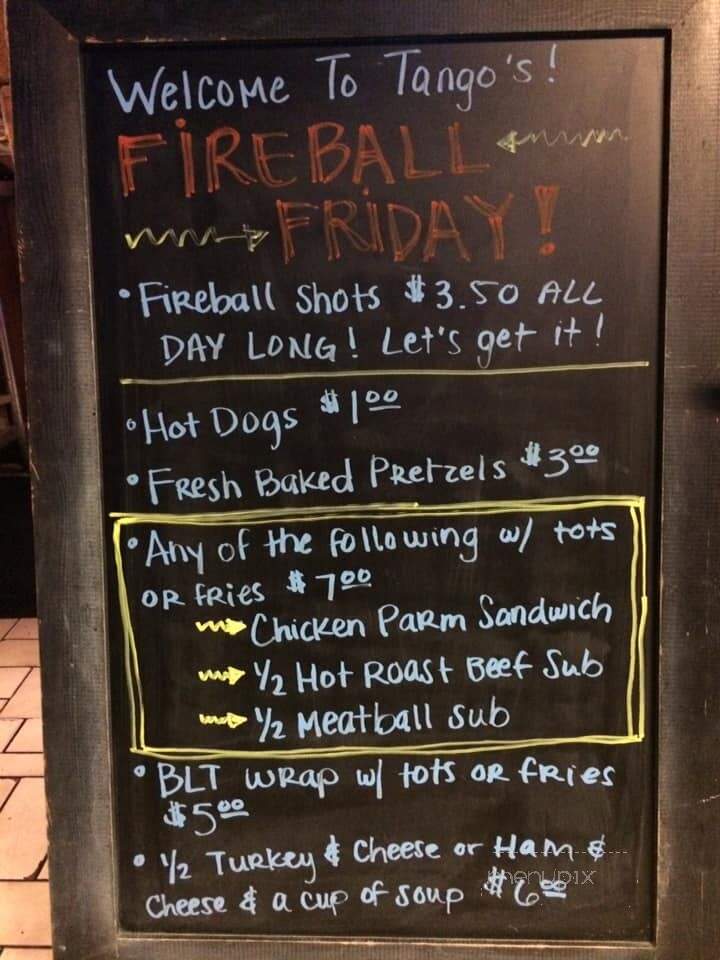 Welcome To Tango's!
FIREBALL
FRIDAY!
• Fireball Shots $3.50 ALL
DAY LONG! Let's get it!
• Hot Dogs $1.00
• Fresh Baked Pretzels $3.00
• Any of the following w/ tots
or fries $7.00
Chicken Parm Sandwich
1/2 Hot Roast Beef Sub
1/2 Meatball Sub
• BLT wrap w/ tots or fries
$5.00
• 1/2 Turkey & Cheese or Ham &
Cheese & a cup of soup $6.00
menupix